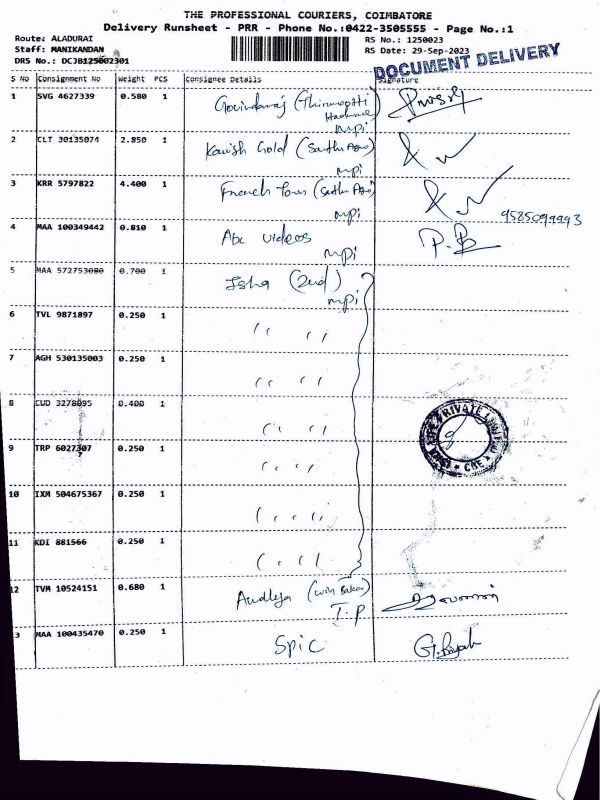 THE PROFESSIONAL COURIERS, COIMBATORE
Delivery Runsheet - PRR - Phone No.:0422-3505555 - Page No.:1
Route: ALADURAI
RS No.: 1250023
Staff: MANIKANDAN
RS Date: 29-Sep-2023
DRS No.: DCJB125002301
DOCUMENT DELIVERY
S No Consignment No Weight PCS Consignee Details Signature
1 SVG 4627339 0.580 1 Govindaraj
mpi
2 CLT 30135074 2.850 1 Kavish Gold
mpi
3 KRR 5797822 4.400 1 French
mpi
9585099993
4 MAA 100349442 0.810 1 Abc videos P.B
mpi
5 MAA 572753080 0.700 1 Isha (2nd)
mpi
6 TVL 9871897 0.250 1 " "
7 AGH 530135003 0.250 1 " "
8 CUD 3278095 0.400 1 " "
PRIVATE LIMITED
CBE
9 TRP 6027307 0.250 1 " "
10 IXM 504675367 0.250 1 " "
11 KDI 881566 0.250 1 " "
12 TVM 10524151 0.680 1
I.P
3 MAA 100435470 0.250 1 Spic